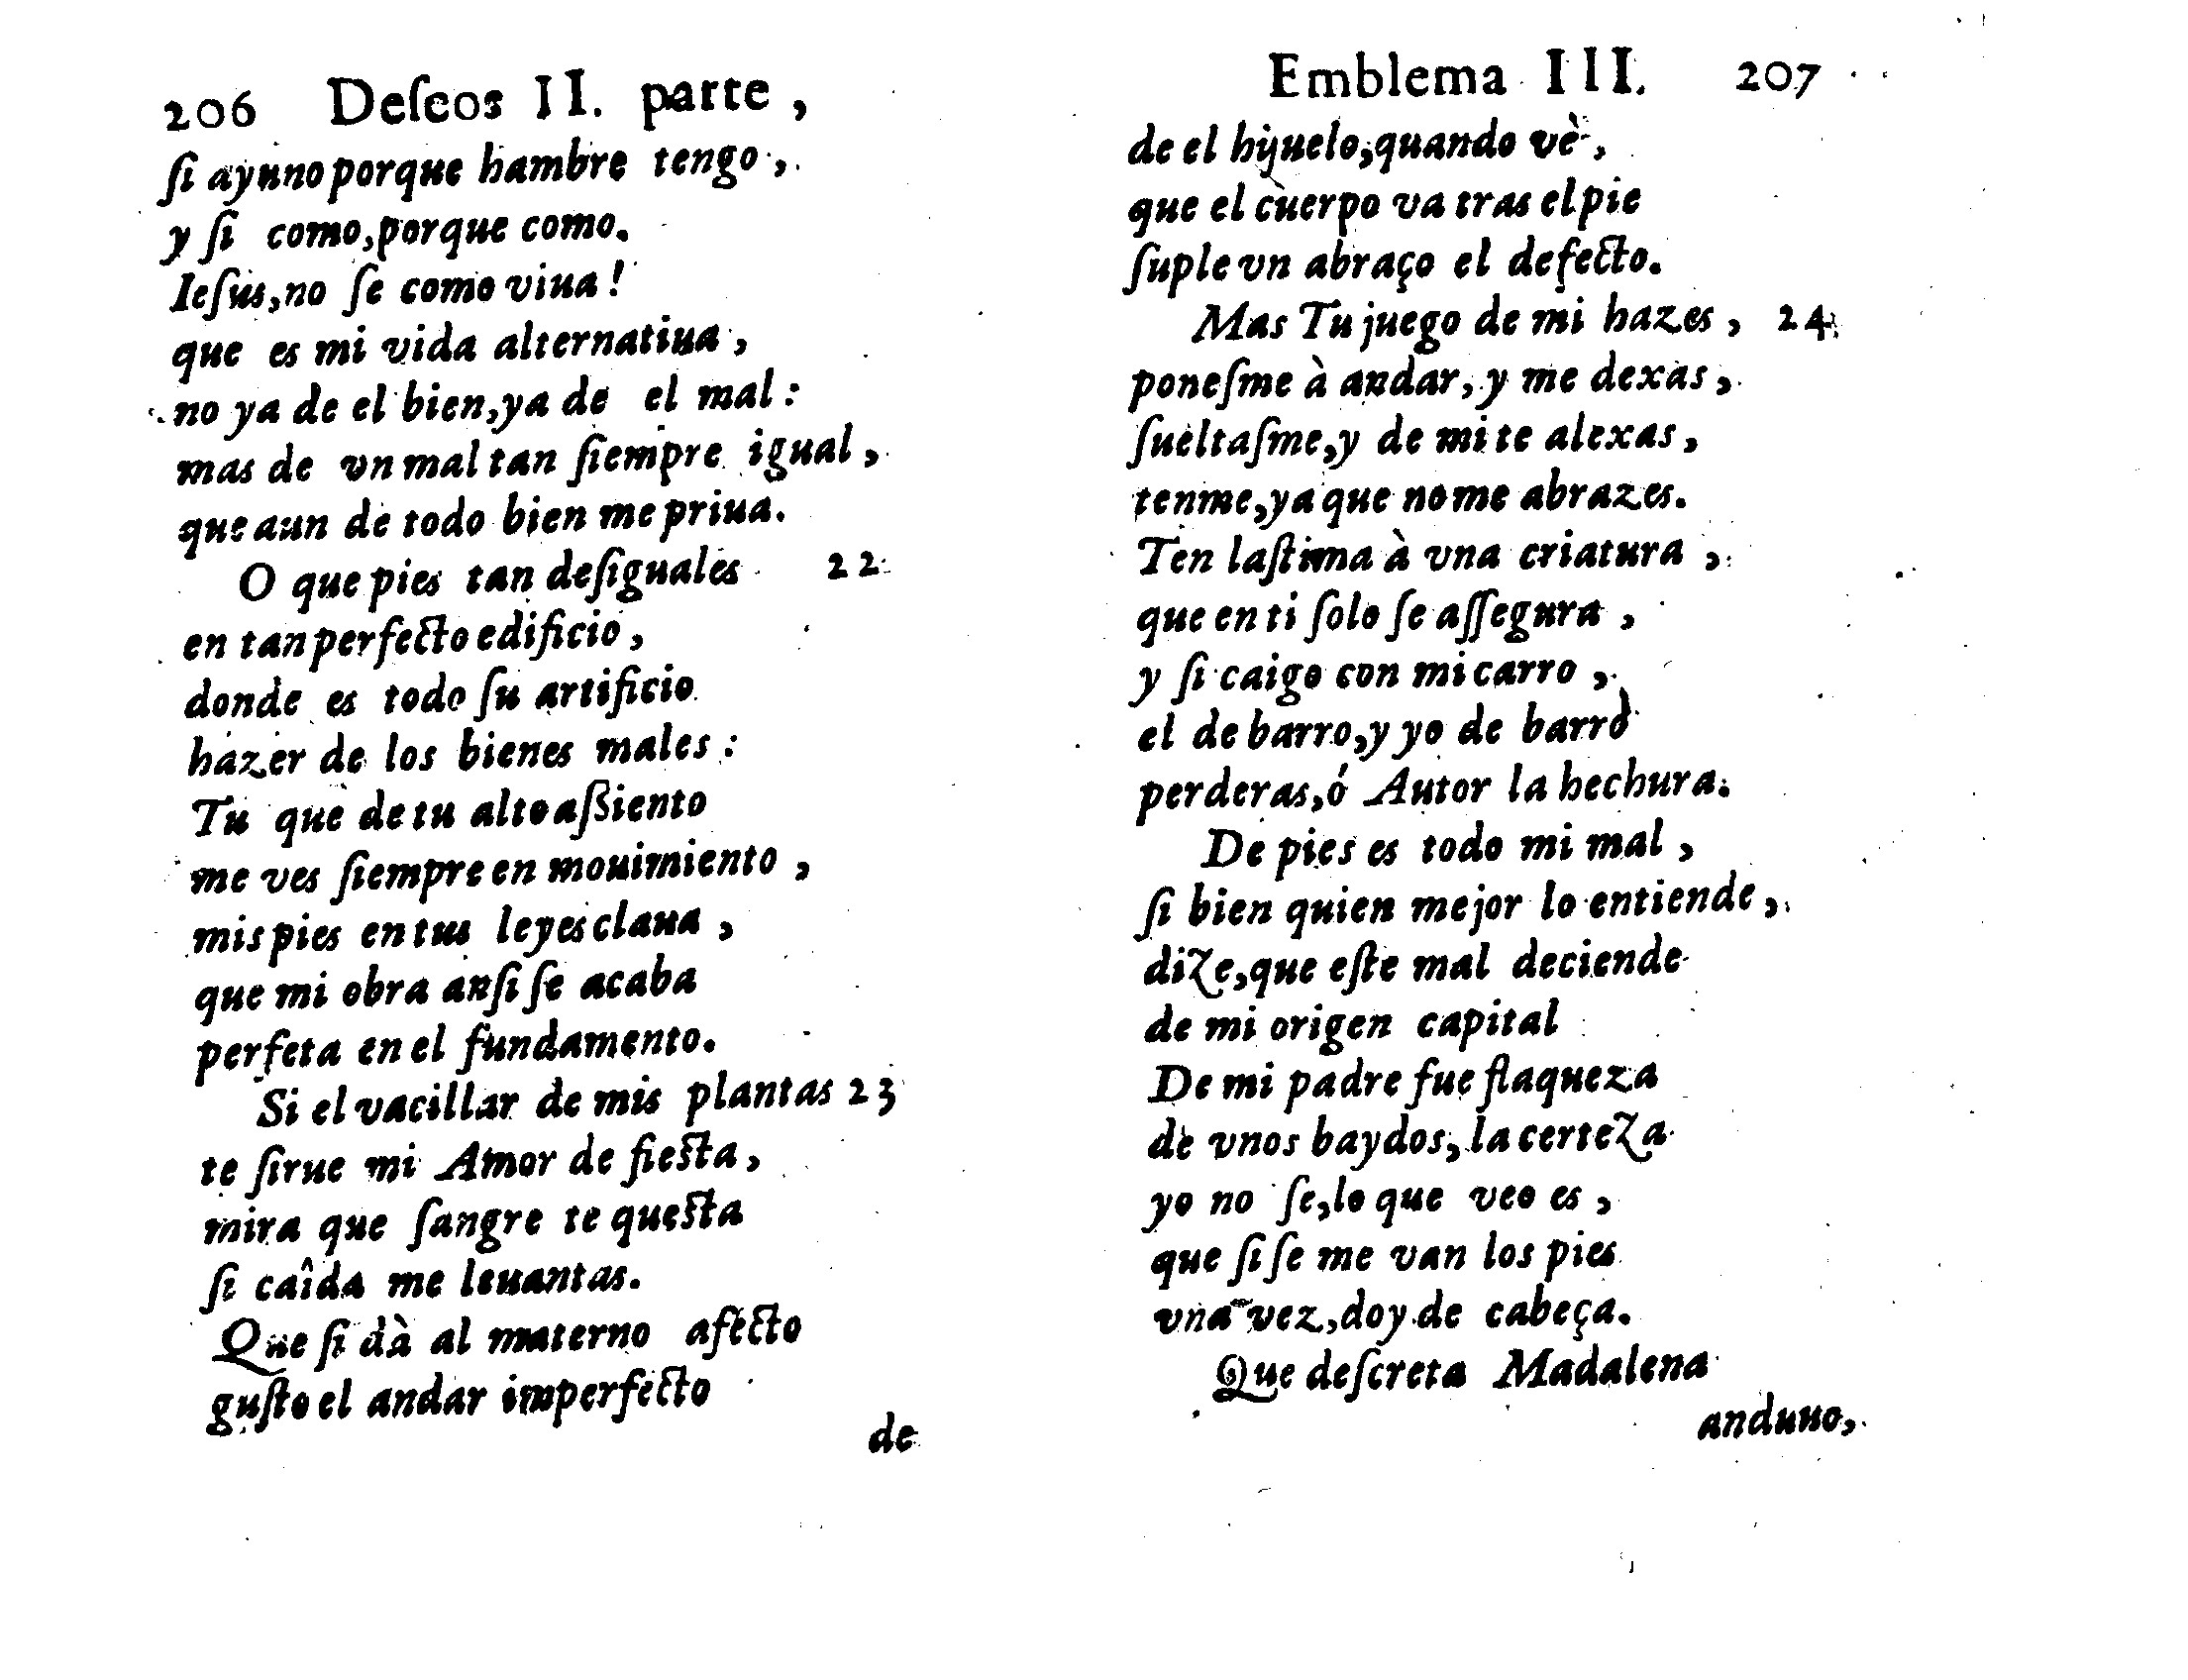 206 Deſeos II. parte,
ſi ayuno porque hambre tengo,
y ſi como, porque como.
Ieſus, no ſe como viua!
que es mi vida alternatiua,
no ya de el bien, ya de el mal:
mas de vn mal tan ſiempre igual,
que aun de todo bien me priua.
O que pies tan deſiguales 22
en tan perfecto edificio,
donde es todo ſu artificio
hazer de los bienes males:
Tu que de tu alto aſsiento
me ves ſiempre en mouimiento,
mis pies en tus leyes claua,
que mi obra anſi ſe acaba
perfeta en el fundamento.
Si el vacillar de mis plantas 23
te ſirue mi Amor de fieſta,
mira que ſangre te queſta
ſi caîda me leuantas.
Que ſi dà al materno afecto
guſto el andar imperfecto
de
Emblema III. 207
de el hijuelo, quando vè,
que el cuerpo va tras el pie
ſuple vn abraço el defecto.
Mas Tu juego de mi hazes, 24
poneſme à andar, y me dexas,
ſueltaſme, y de mi te alexas,
tenme, ya que no me abrazes.
Ten laſtima à vna criatura,
que en ti ſolo ſe aſſegura,
y ſi caigo con mi carro,
el de barro, y yo de barro
perderas, ó Autor la hechura.
De pies es todo mi mal,
ſi bien quien mejor lo entiende,
dize, que eſte mal deciende
de mi origen capital
De mi padre fue flaqueza
de vnos baydos, la certeza
yo no ſe, lo que veo es,
que ſi ſe me van los pies
vna vez, doy de cabeça.
Que deſcreta Madalena
anduuo,